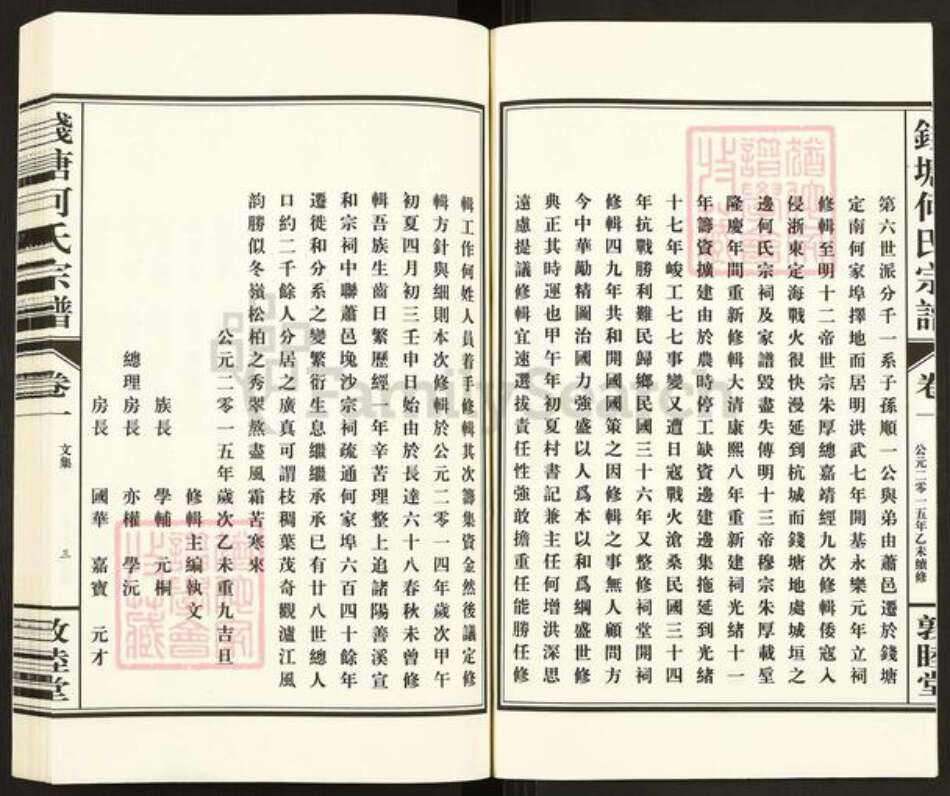 錢塘何氏宗譜
卷一
公元二零一五年乙未續修
敦睦堂
第六世派分千一系子孫順一公與弟由蕭邑遷於錢塘
定南何家埠擇地而居明洪武七年開基永樂元年立祠
修輯至明十二帝世宗朱厚總嘉靖經九次修輯倭寇入
侵浙東定海戰火很快漫延到杭城而錢塘地處城垣之
邊何氏宗祠及家譜毀盡失傳明十三帝穆宗朱厚載壐
隆慶年間重新修輯大清康熙八年重新建祠光緒十一
年籌資擴建由於農時停工缺資邊建邊集拖延到光緒
十七年峻工七七事變又遭日寇戰火滄桑民國三十四
年抗戰勝利難民歸鄉民國三十六年又整修祠堂開祠
修輯四九年共和開國國策之因修輯之事無人顧問方
今中華勵精圖治國力強盛以人為本以和為綱盛世修
典正其時運也甲午年初夏村書記兼主任何增洪深思
遠慮提議修輯宜速選拔責任性強敢擔重任能勝任修
輯工作何姓人員着手修輯其次籌集資金然後議定修
輯方針與細則本次修輯於公元二零一四年歲次甲午
初夏四月初三壬申日始由於長達六十八春秋未曾修
輯吾族生齒日繁歷經一年辛苦理整上追諸陽善溪宣
和宗祠中聯蕭邑堍沙宗祠疏通何家埠六百四十餘年
遷徙和分系之變繁衍生息繼繼承承已有廿八世總人
口約二千餘人分居之廣真可謂枝稠葉茂奇觀瀘江風
韵勝似冬嶺松柏之秀翠熬盡風霜苦寒來
公元二零一五年歲次乙未重九吉旦
修輯主編執文
族長 學輔 元桐
總理房長 亦權 學沅
房長 國華 嘉寶 元才
錢塘何氏宗譜
卷一
文集
三
敦睦堂
FamilySearch